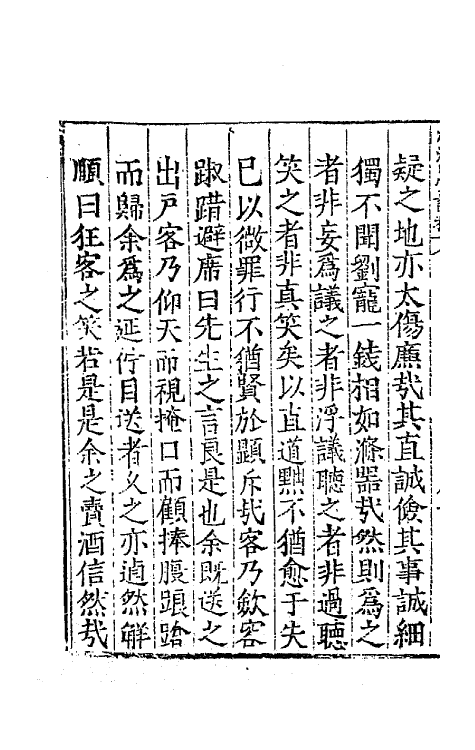 疑之地亦太傷廉哉其直誠儉其事誠細
獨不聞劉寵一錢相如滌器哉然則爲之
者非妄爲議之者非浮議聽之者非過聽
笑之者非真笑矣以直道黜不猶愈于失
已以微罪行不猶賢於顯斥哉客乃斂容
踧踖避席曰先生之言良是也余旣送之
出戶客乃仰天而視掩口而顧捧腹踉蹌
而歸余爲之延佇目送者久之亦逌然解
頤曰狂客之笑若是是余之賣酒信然哉